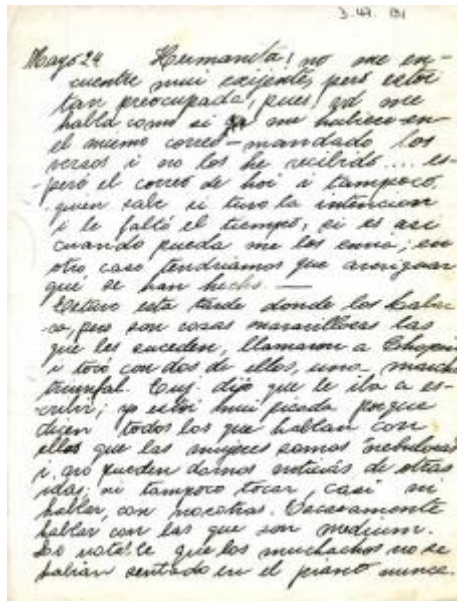 3-47. 131
Mayo 24 Hermanita! no me en-
cuentre mui exijente, pero estoi
tan preocupada, pues ud me
habla como si ya me hubiese en
el mismo correo - mandado los
versos i no los he recibido.... es-
peré el correo de hoi i tampoco,
quien sabe si tuvo la intencion
i le faltó el tiempo, si es asi
cuando pueda me los envia; en
otro caso tendriamos que averiguar
qué se han hecho —
Estuve esta tarde donde los
pero son cosas maravillosas las
que les suceden, llamaron a Chopin
i tocó con dos de ellos, una marcha
triunfal. dijo que le iba a es-
cribir; yo estoi mui picada porque
dicen todos los que hablan con
ellos que las mujeres somos "nebulosas"
i no pueden darnos noticias de otras
vidas, ni tampoco tocar, casi ni
hablar, con nosotras. Escasamente
hablar con las que son medium.
que los muchachos no se
habian sentado en el piano nunca.